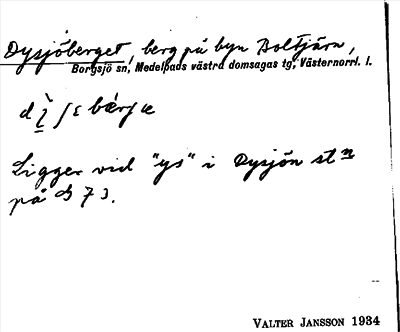 Dysjöberget, berg på byn Boltjärn,
Borgsjö sn, Medelpads västra domsagas tg, Västernorrl. l.
Ligger vid "ys" i Dysjön stn
på
VALTER JANSSON 1934